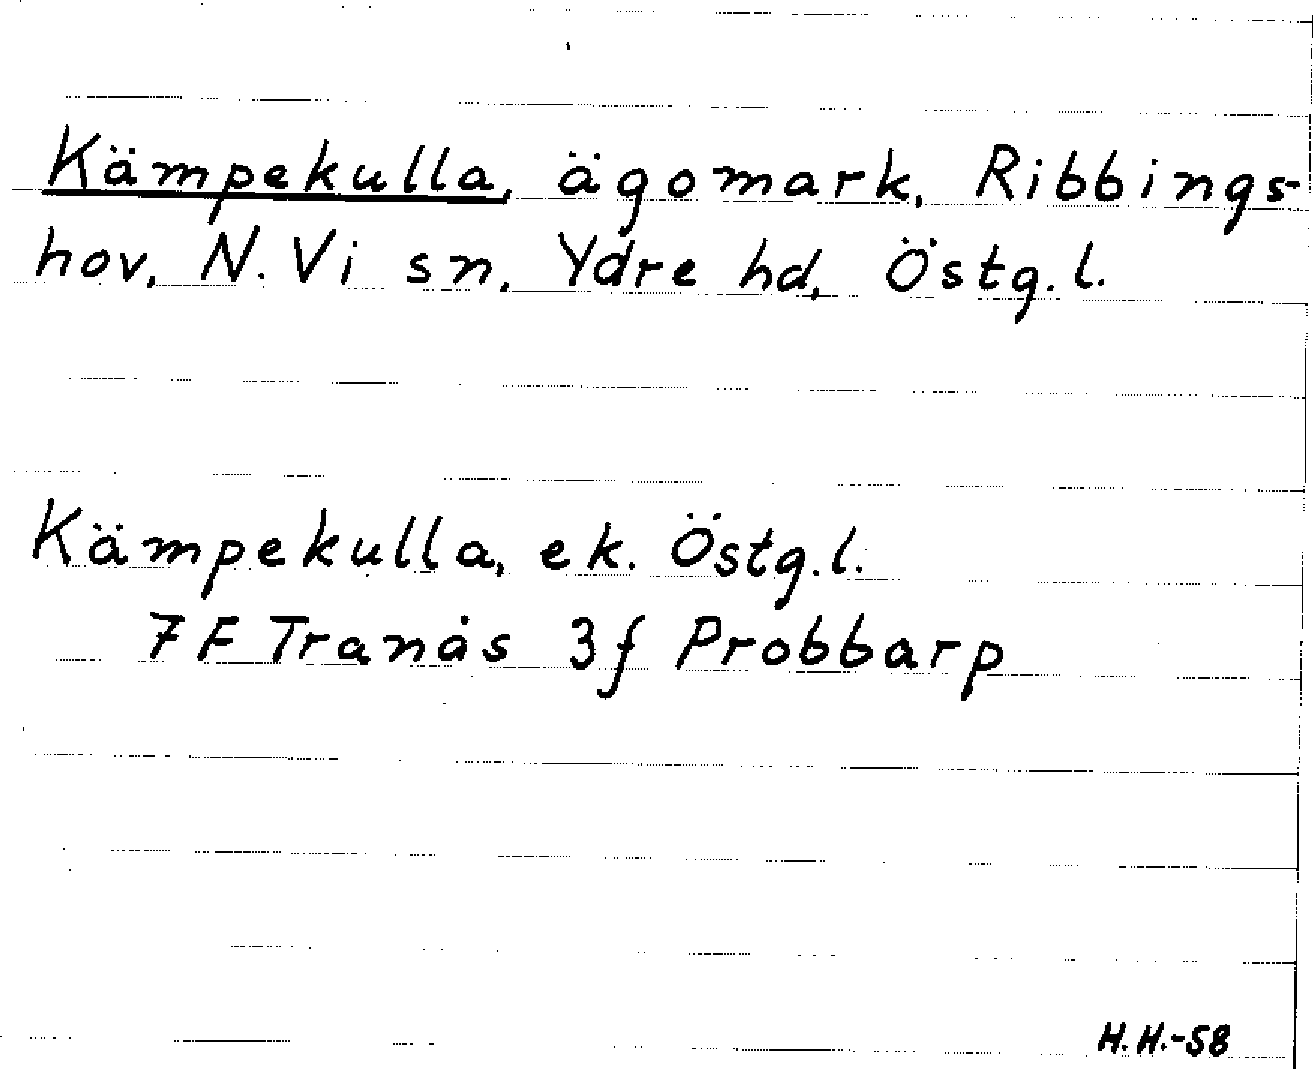 Kämpekulla, ägomark, Ribbings-
hov, N. Vi sn, Ydre hd, Östg. l.
Kämpekulla, ek. Östg. l.
7 F Tranås 3f Probbarp
H. H.-58